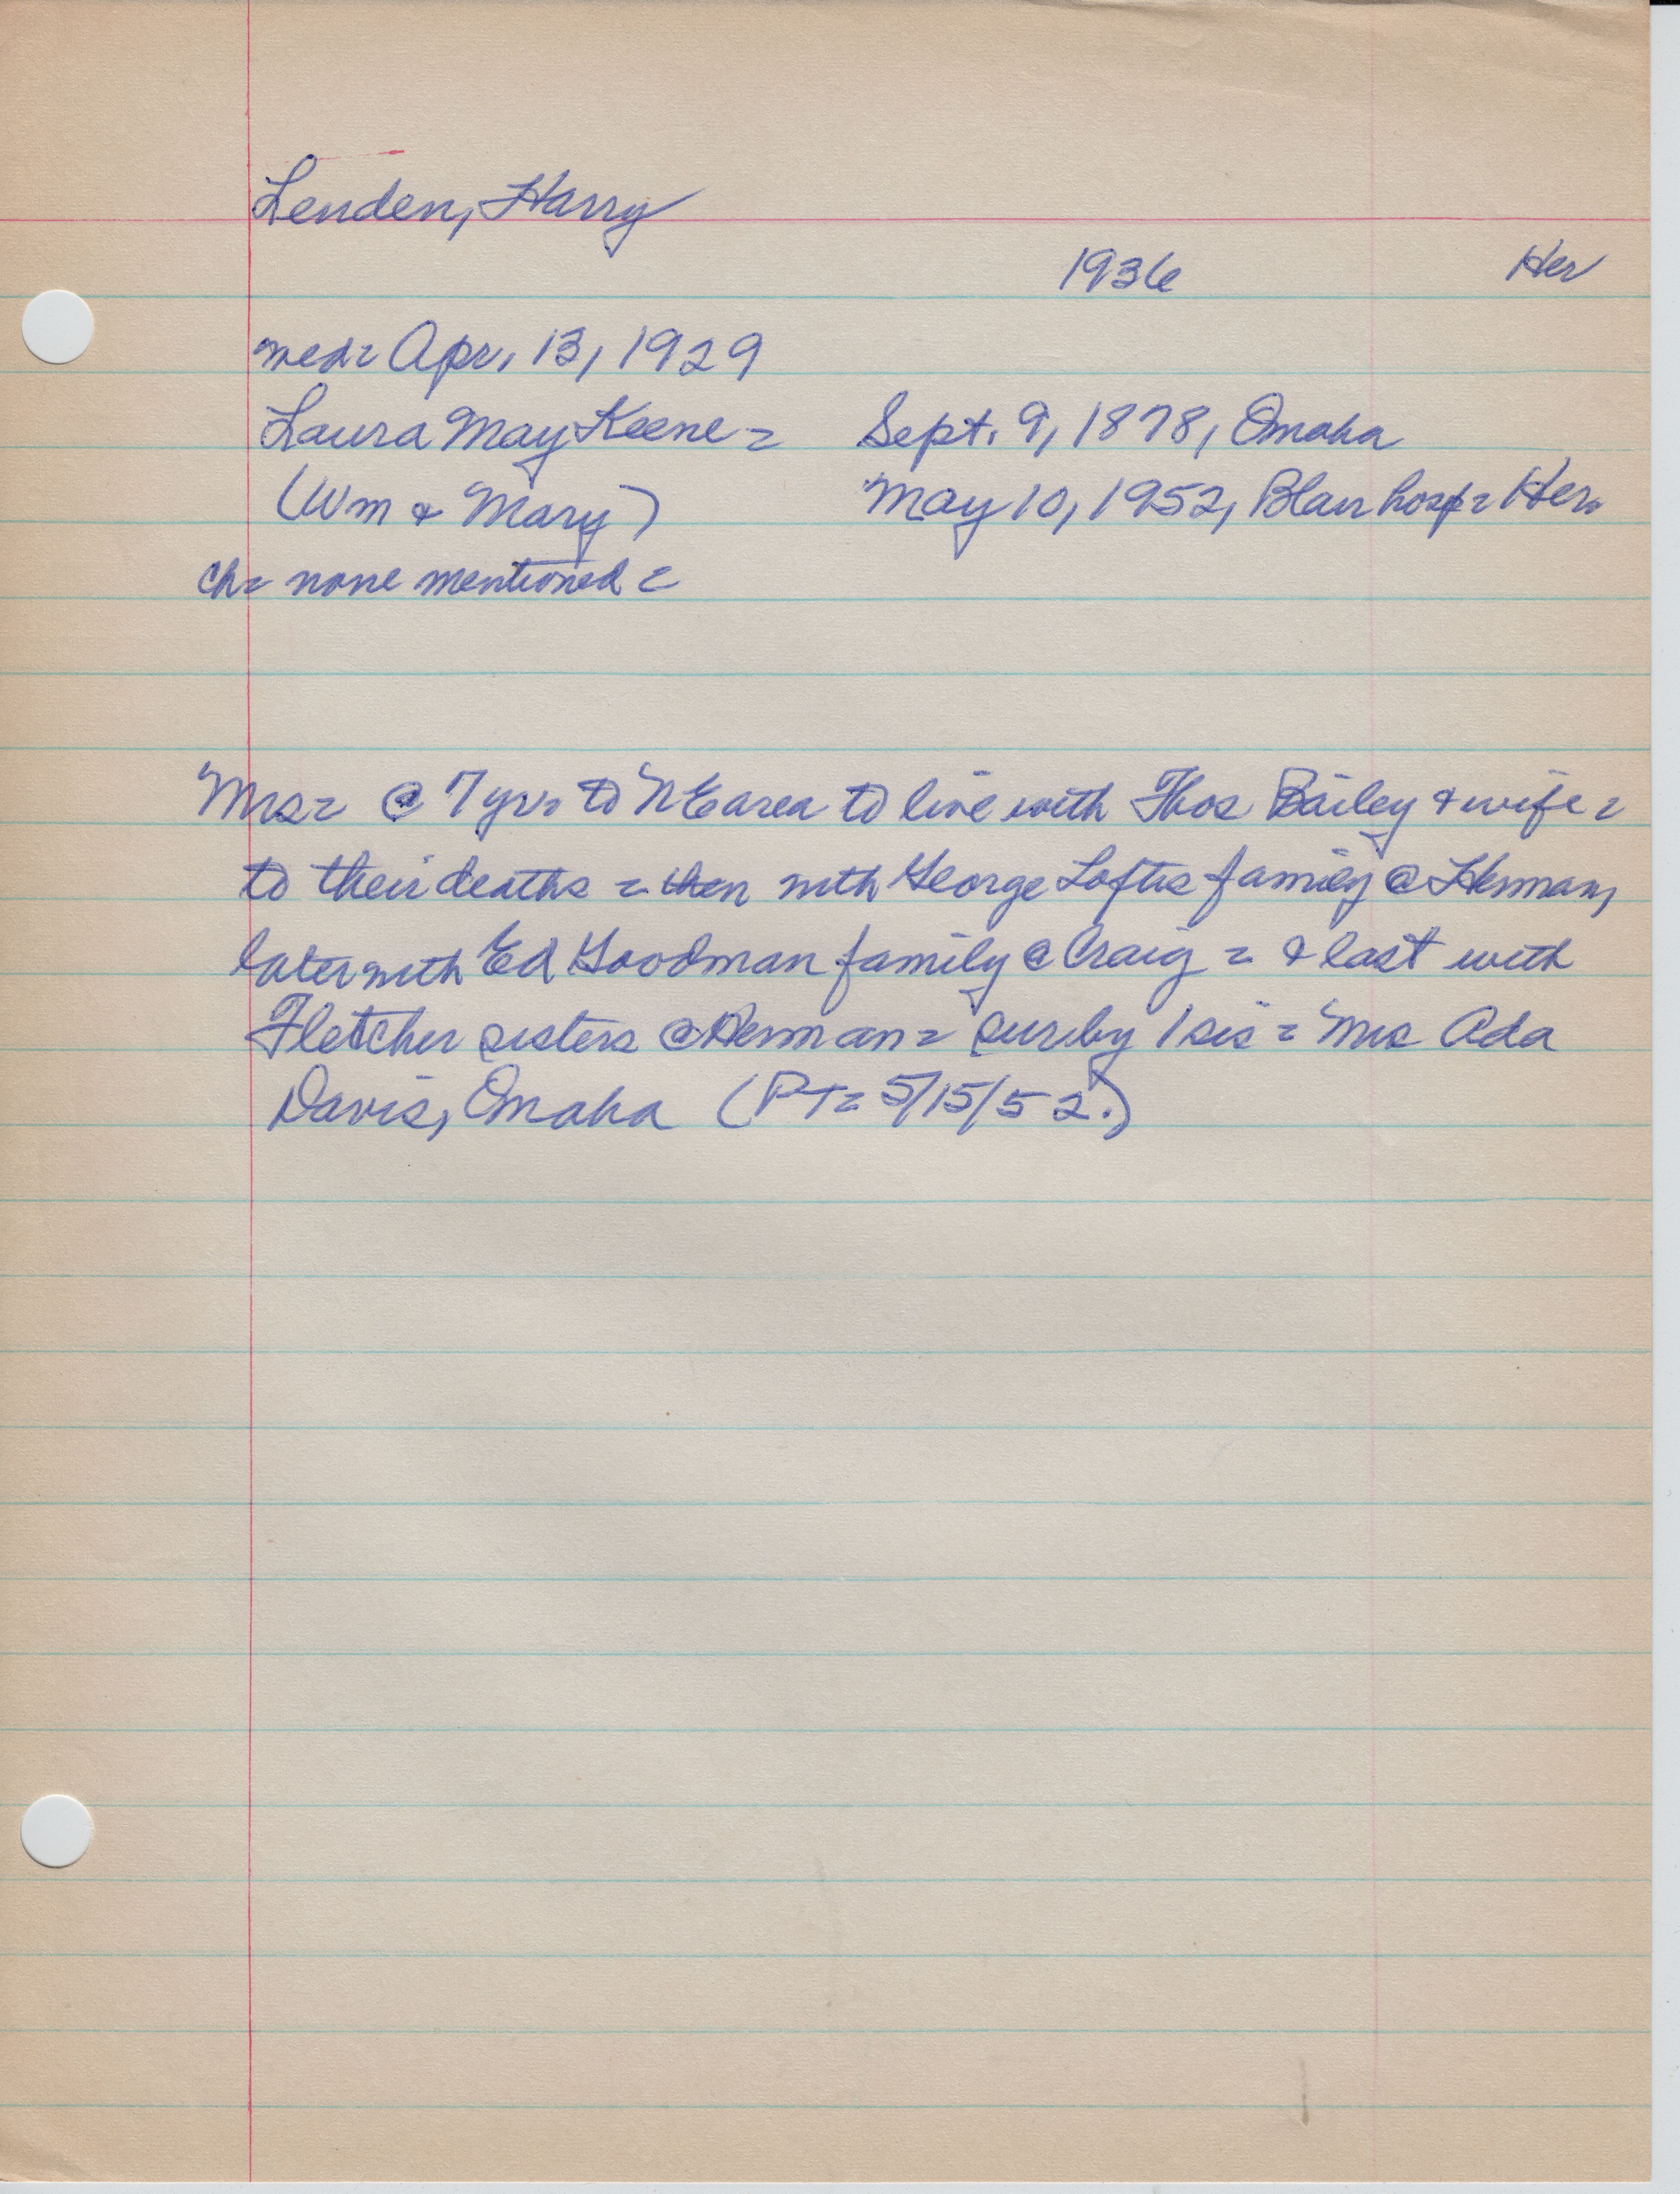 Lenden, Harry
1936 Her
med= Apr. 13, 1929
Laura May Keene = Sept. 9, 1878, Omaha
(Wm & Mary) May 10, 1952, Blair hosp= Her.
ch= none mentioned =
Mrs= @ 7 yrs to NE area to live with Thos Bailey & wife =
to their deaths = then with George Loftis family @ Herman,
later with Ed Goodman family @ Craig = & last with
Fletcher sisters @ Herman = sur by 1 sis = Mrs Ada
Davis, Omaha (PT= 5/15/52.)